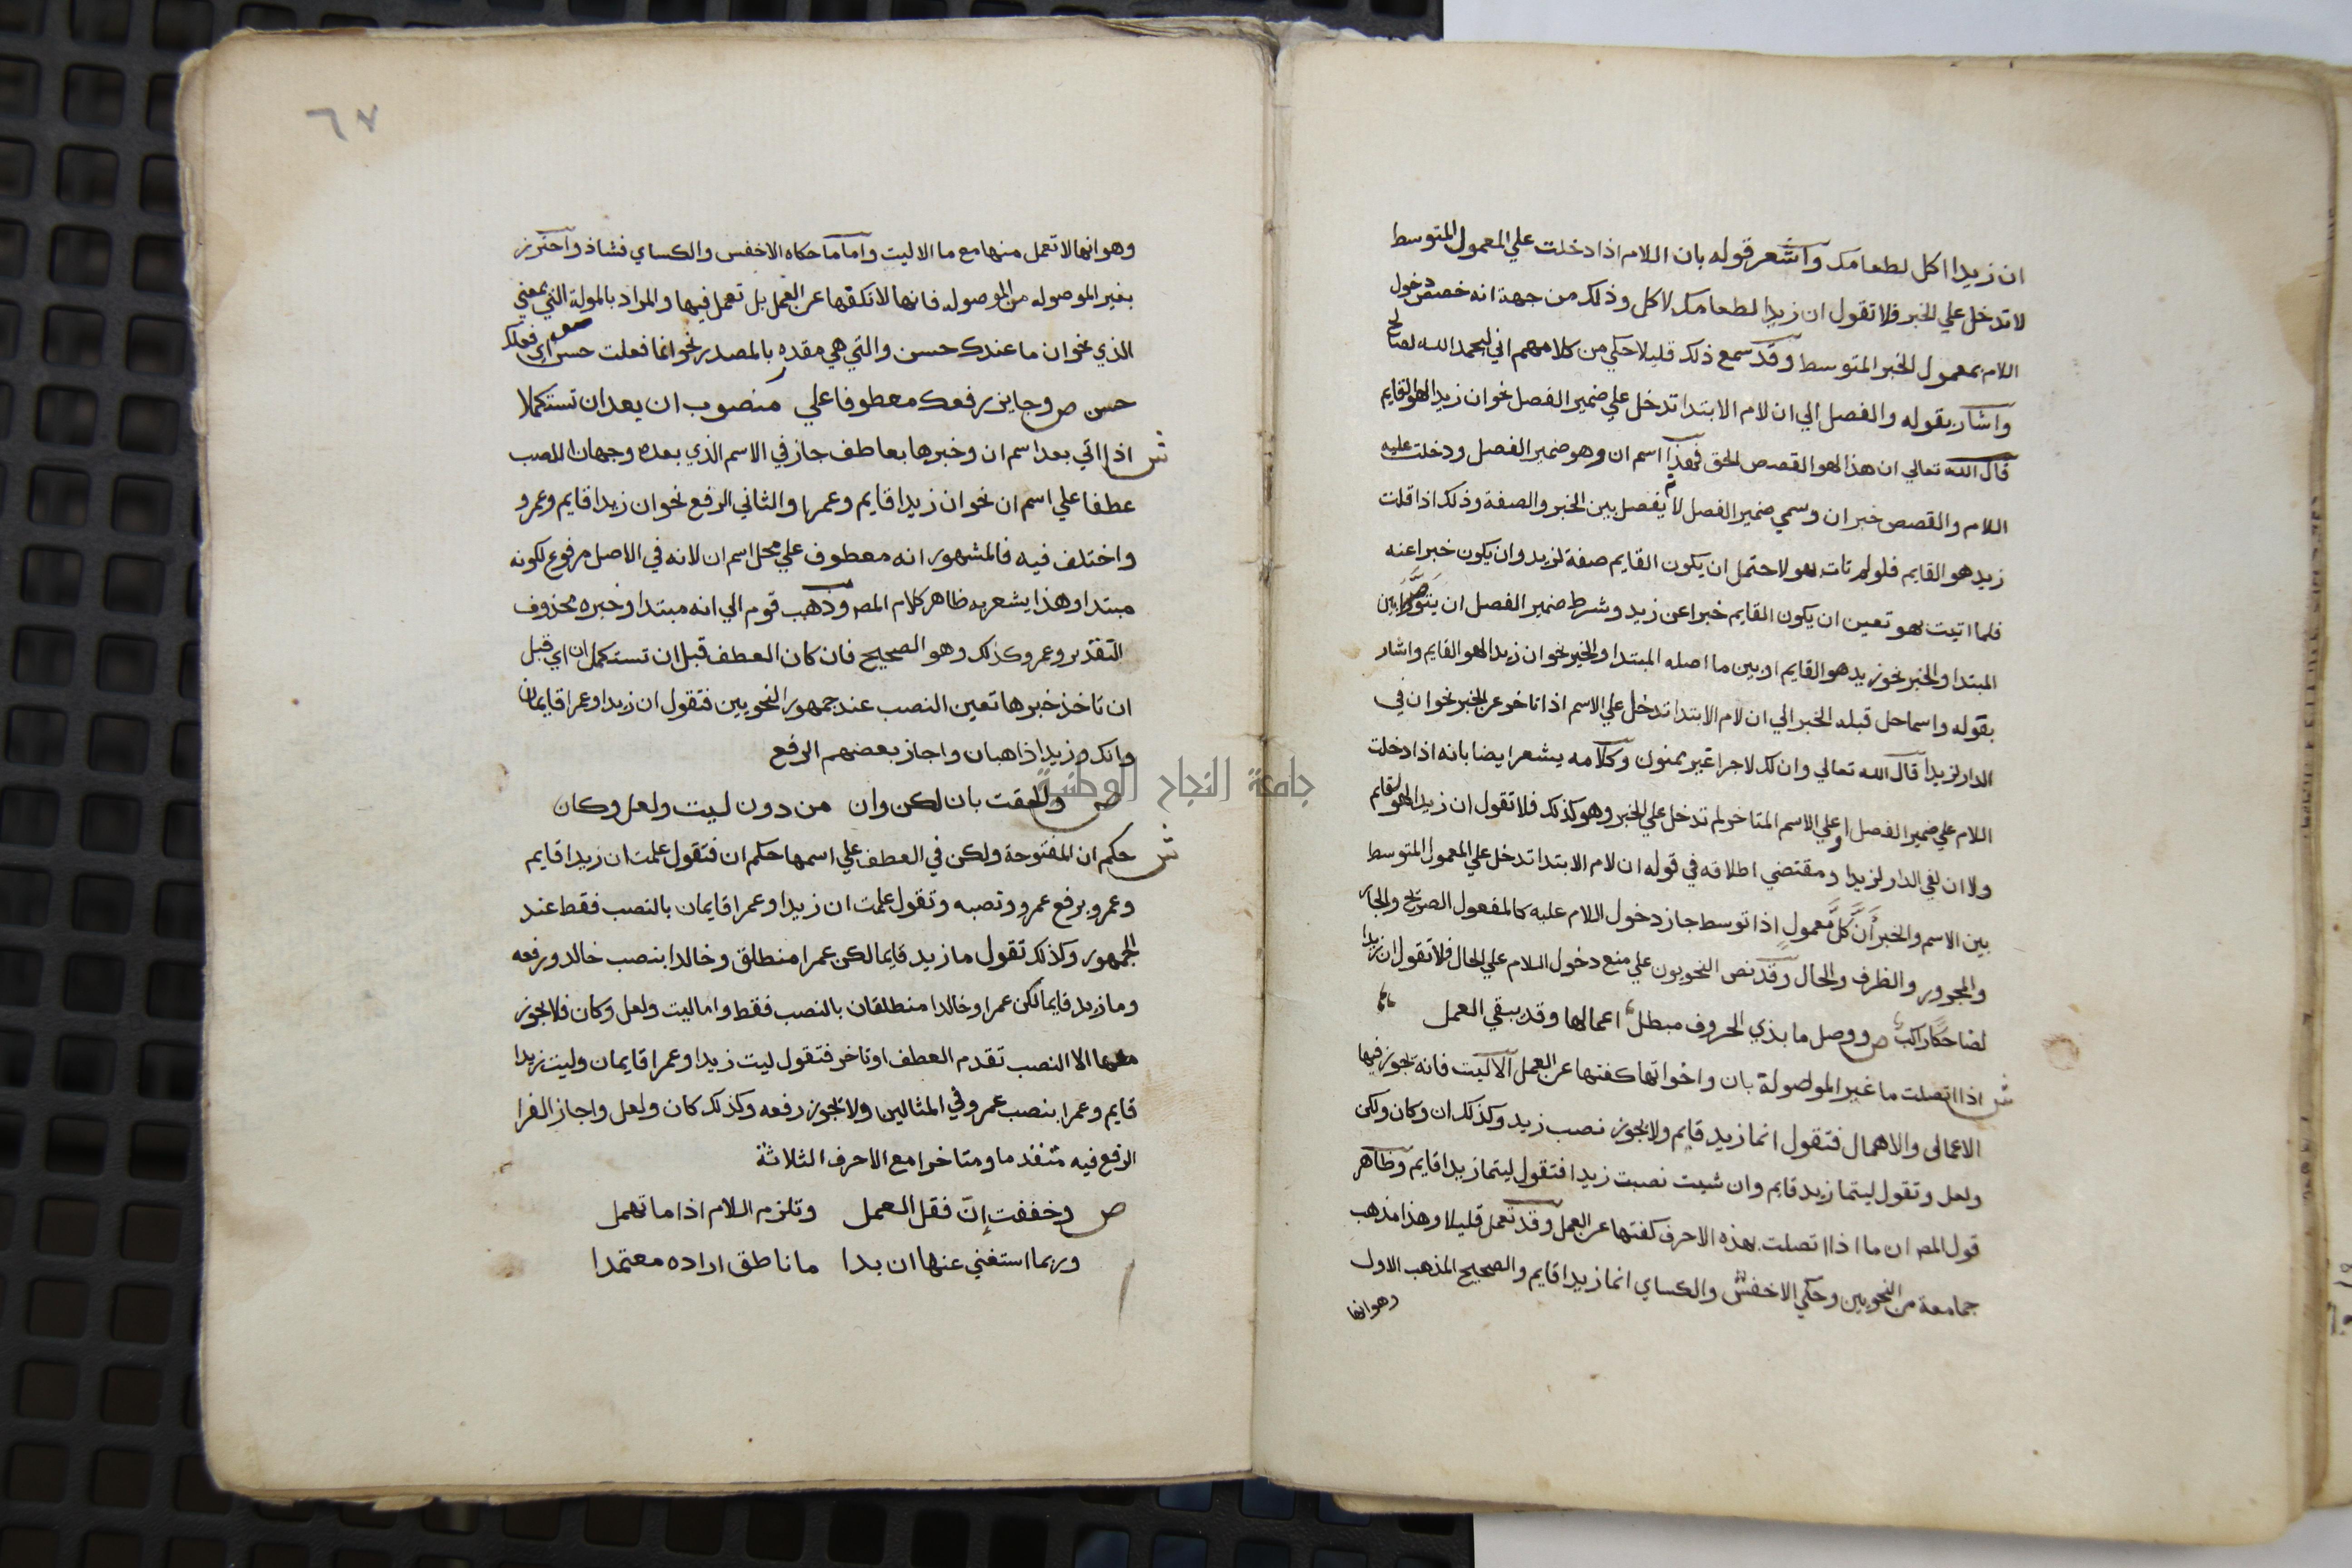 ان زيدا اكل لطعامك واشعر قوله بان اللام اذا دخلت علي المعمول المتوسط
لا تدخل علي الخبر فلا تقول ان زيدا لطعامك لاكل وذلك من جهة انه خصص دخول
اللام بمعمول الخبر المتوسط وقد سمع ذلك قليلا حكي من كلامهم اني لبحمد الله لصالح
واشار بقوله والفصل الي ان لام الابتدا تدخل علي ضمير الفصل نحو ان زيدا لهو القايم
قال الله تعالي ان هذا لهو القصص الحق فهذا اسم ان وهو ضمير الفصل ودخلت عليه
اللام والقصص خبر ان وسمي ضمير الفصل لانه يفصل بين الخبر والصفة وذلك اذا قلت
زيد هو القايم فلو لم تات بهو لاحتمل ان يكون القايم صفة لزيد وان يكون خبرا عنه
فلما اتيت بهو تعين ان يكون القايم خبرا عن زيد وشرط ضمير الفصل ان يتوسط بين
المبتدا والخبر نحو زيد هو القايم او بين ما اصله المبتدا والخبر نحو ان زيدا لهو القايم واشار
بقوله واسما حل قبله الخبر الي ان لام الابتدا تدخل علي الاسم اذا تاخر عن الخبر نحو ان في
الدار لزيدا قال الله تعالي وان لك لاجرا غير ممنون وكلامه يشعر ايضا بانه اذا دخلت
اللام علي ضمير الفصل او علي الاسم المتاخر لم تدخل علي الخبر وهو كذلك فلا تقول ان زيدا لهو لقايم
ولا ان لفي الدار لزيدا ومقتضي اطلاقه في قوله ان لام الابتدا تدخل علي المعمول المتوسط
بين الاسم والخبر أنَّ كلَّ معمولٍ اذا توسط جاز دخول اللام عليه كالمفعول الصريح والجار
والمجرور والظرف والحال وقد نص النحويون علي منع دخول اللام علي الحال فلا تقول ان زيدا
لضاحكا راكب ص ووصل ما بذي الحروف مبطل اعمالها وقد يبقي العمل
ش اذا اتصلت ما غير الموصولة بان واخواتها كفتها عن العمل الا ليت فانه يجوز فيها
الاعمال والاهمال فتقول انما زيد قايم ولا يجوز نصب زيد وكذلك ان وكان ولكن
ولعل وتقول ليتما زيد قايم وان شيت نصبت زيدا فتقول ليتما زيدا قايم وظاهر
قول المص ان ما اذا اتصلت بهذه الاحرف كفتها عن العمل وقد تعمل قليلا وهذا مذهب
جماعة من النحويين وحكي الاخفش والكساي انما زيدا قايم والصحيح المذهب الاول
وهو انها
٦٧
وهو انها لا تعمل منها مع ما الا ليت واما ما حكاه الاخفس والكساي فشاذ واحترز
بغير الموصوله من الموصوله فانها لا تكفها عن العمل بل تعمل فيها والمراد بالموصولة التي بمعني
الذي نحو ان ما عندك حسن والتي هي مقدره بالمصدر نحو انما فعلت حسن اي فعلك
حسن ص وجايز رفعك معطوفا علي منصوب ان بعد ان تستكملا
ش اذا اتي بعد اسم ان وخبرها بعاطف جاز في الاسم الذي بعده وجهان النصب
عطفا علي اسم ان نحو ان زيدا قايم وعمرا والثاني الرفع نحو ان زيدا قايم وعمرو
واختلف فيه فالمشهور انه معطوف علي محل اسم ان لانه في الاصل مرفوع لكونه
مبتدا وهذا يشعر به ظاهر كلام المص وذهب قوم الي انه مبتدا وخبره محذوف
التقدير وعمرو كذلك وهو الصحيح فان كان العطف قبل ان تستكمل ان اي قبل
ان تاخذ خبرها تعين النصب عند جمهور النحويين فتقول ان زيدا وعمرا قايمان
وانك وزيدا ذاهبان واجاز بعضهم الرفع
ص والحقت بان لكن وان من دون ليت ولعل وكان
ش حكم ان المفتوحة ولكن في العطف علي اسمها حكم ان فتقول علمت ان زيدا قايم
وعمرو برفع عمرو ونصبه وتقول علمت ان زيدا وعمرا قايمان بالنصب فقط عند
الجمهور وكذلك تقول ما زيد قايما لكن عمرا منطلق وخالدا بنصب خالد ورفعه
وما زيد قايما لكن عمرا وخالدا منطلقان بالنصب فقط واما ليت ولعل وكان فلا يجوز
معها الا النصب تقدم العطف او تاخر فتقول ليت زيدا وعمرا قايمان وليت زيدا
قايم وعمرا بنصب عمرو في المثالين ولا يجوز رفعه وكذلك كان ولعل واجاز الفرا
الرفع فيه متقدما ومتاخرا مع الاحرف الثلاثة
ص وخففت إنّ فقل العمل وتلزم اللام اذا ما تهمل
وربما استغني عنها ان بدا ما ناطق اراده معتمدا
جامعة النجاح الوطنية